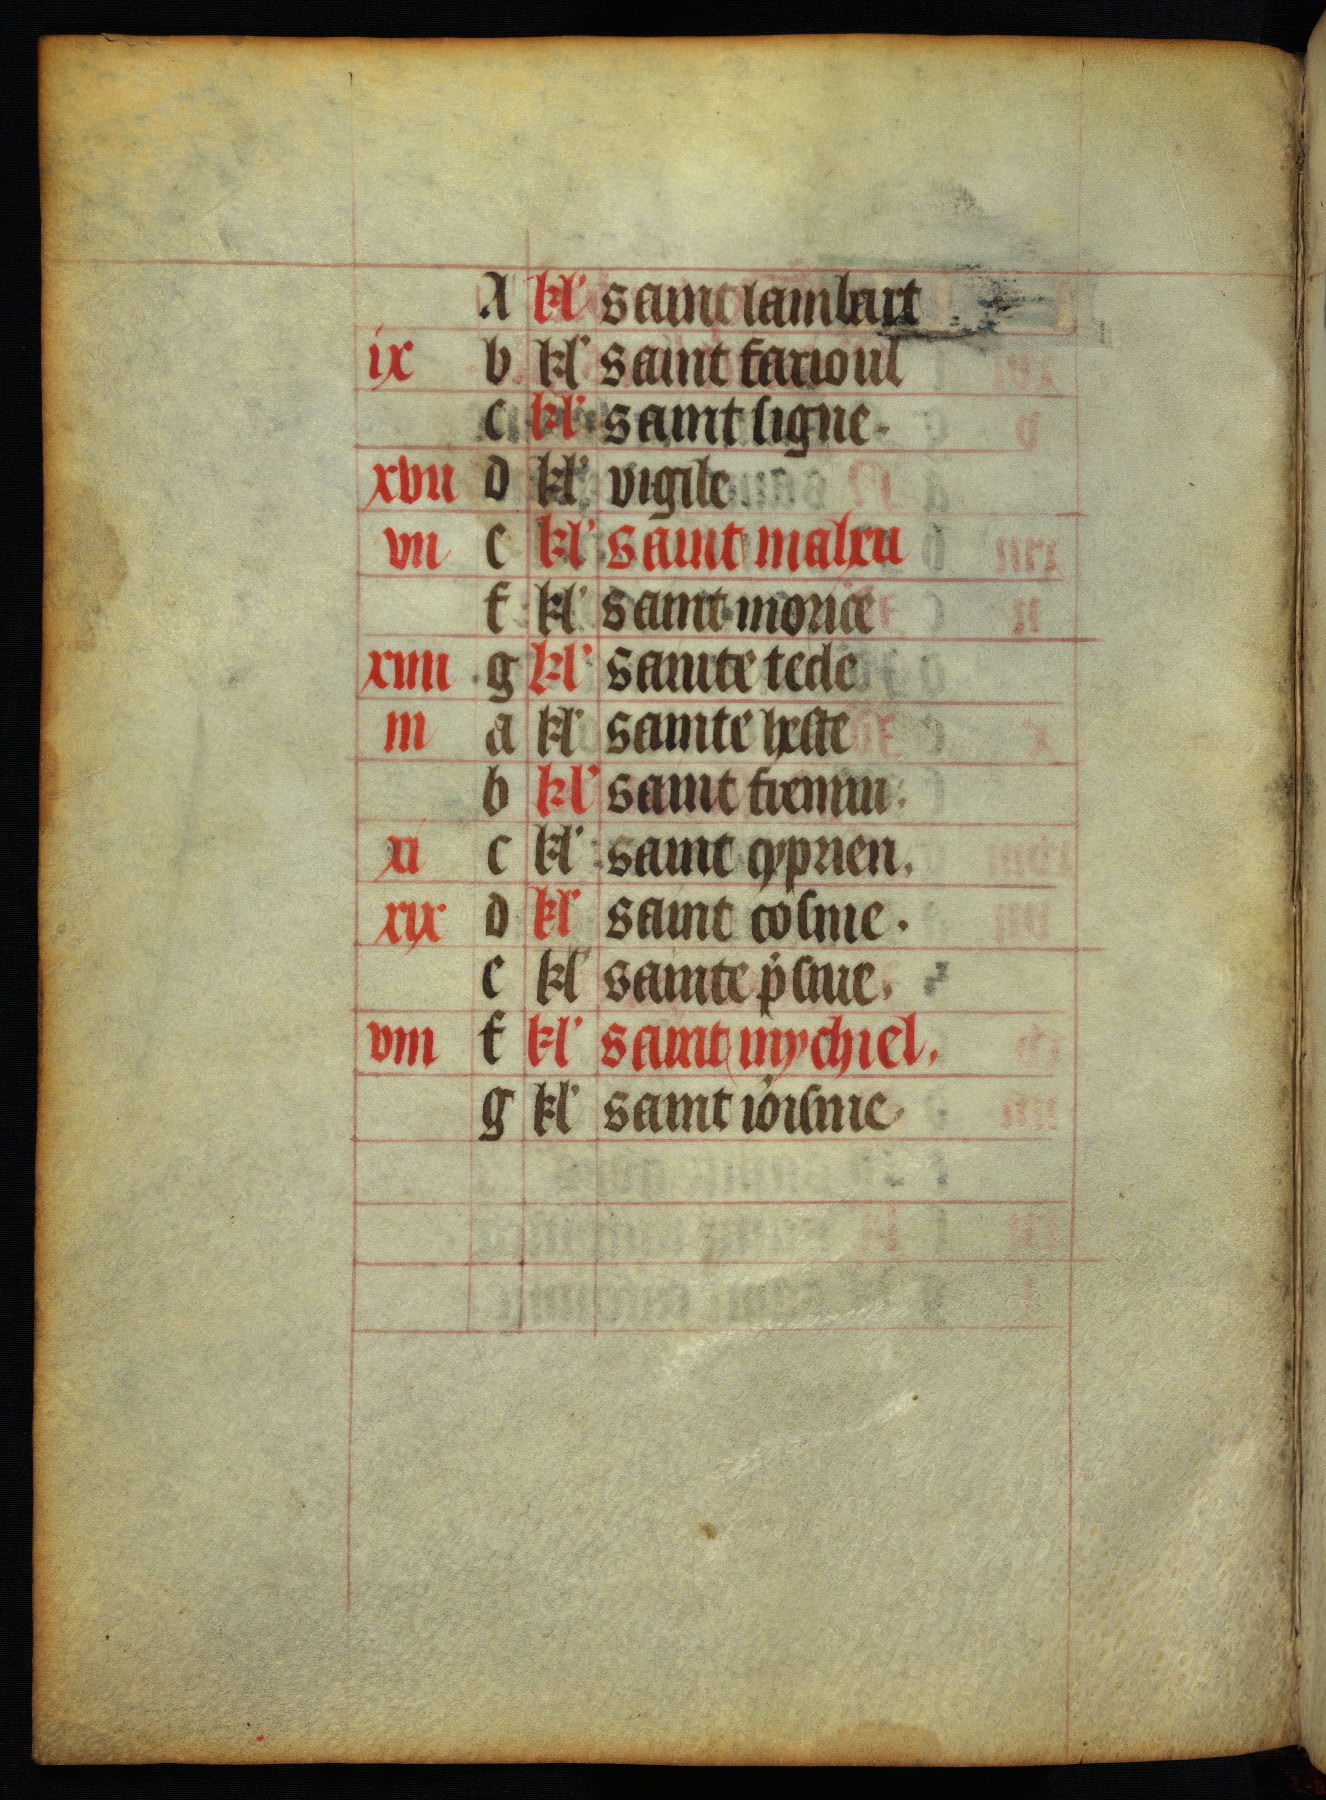 A kl' saint lambart
ix b kl' saint farioul
c kl' saint signe.
xvii d kl' vigile
vii e kl' saint maheu
f kl' saint morice
xiiii g kl' sainte tecle
iii a kl' sainte
b kl' saint fremin.
xi c kl' saint cyprien.
xix d kl' saint cosme.
e kl' sainte
viii f kl' saint mychiel.
g kl' saint